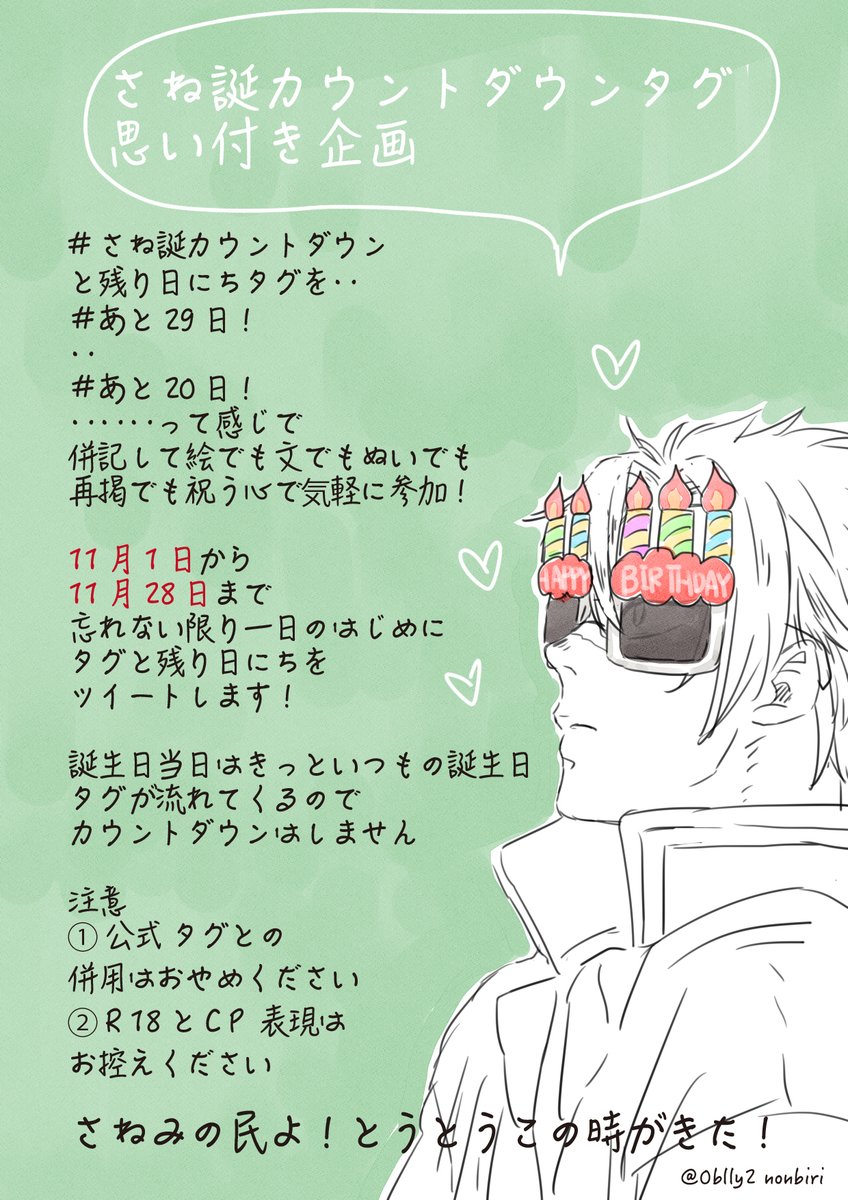 さね誕カウントダウンタグ
思い付き企画
#さね誕カウントダウン
と残り日にちタグを‥
#あと29日！
‥
#あと20日！
‥‥‥って感じで
併記して絵でも文でもぬいでも
再掲でも祝う心で気軽に参加！
11月1日から
11月28日まで
忘れない限り一日のはじめに
タグと残り日にちを
ツイートします！
誕生日当日はきっといつもの誕生日
タグが流れてくるので
カウントダウンはしません
注意
①公式タグとの
併用はおやめください
②R18とCP表現は
お控えください
さねみの民よ！とうとうこの時がきた！
@0blly2 nonbiri
HAPPY BIRTHDAY